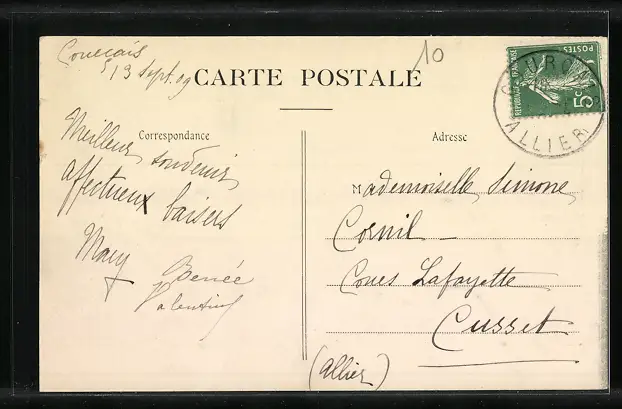 Courçais
13 Sept. 09
10
CARTE POSTALE
POSTES
REPUBLIQUE FRANÇAISE
5c
ALLIER
Correspondance
Adresse
Meilleurs souvenirs
affectueux baisers
Mary
Renée
Valentine
Mademoiselle Simone
Cornil
Cours Lafayette
Cusset
(Allier)